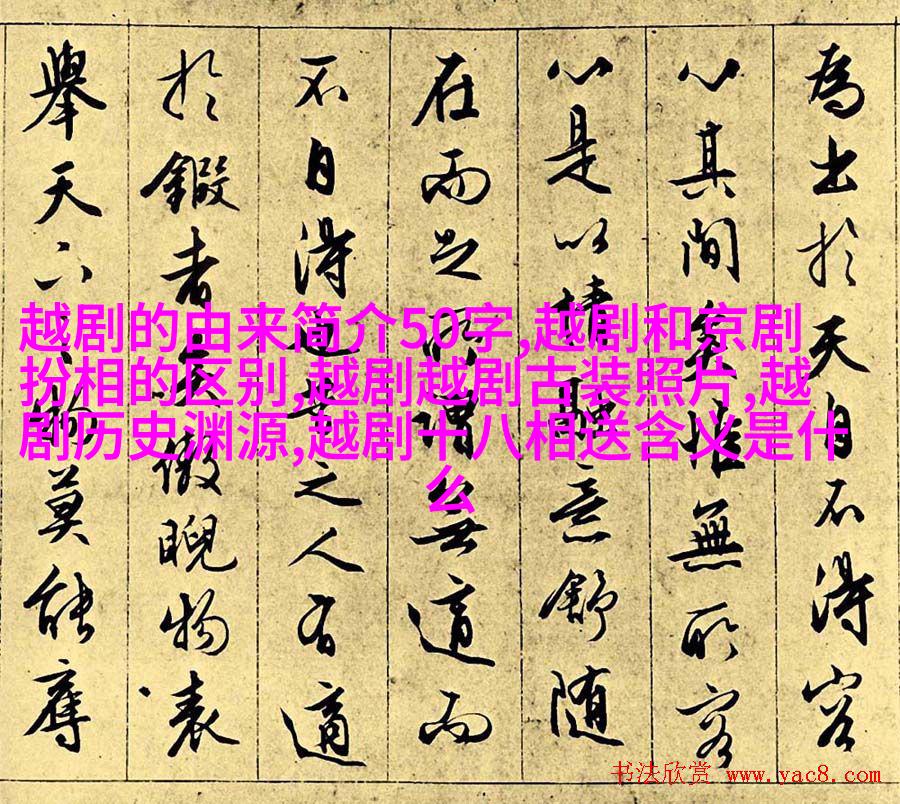 為出於天自不得容
心其間矣惟無所容
心是以融意舒随
在而之所謂無適而
不自得適之人有適
於者矣傲睨物表
舉天下莫能
越剧的由来简介50字,越剧和京剧
扮相的区别,越剧越剧古装照片,越
剧历史渊源,越剧十八相送含义是什
么
书法欣赏 www.yac8.com